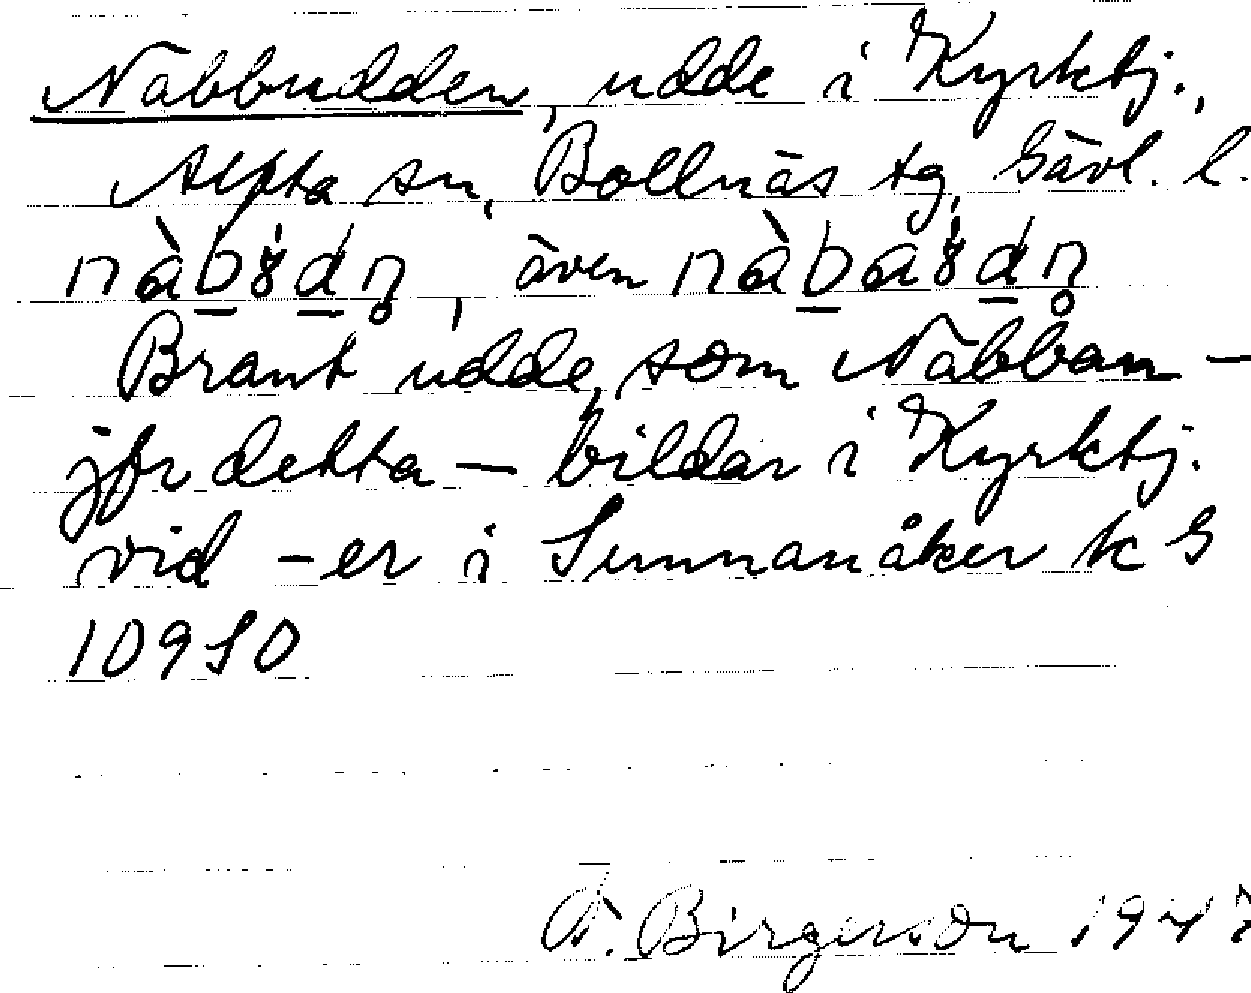 Nabbudden, udde i Kyrktj.,
Alfta sn, Bollnäs tg, Gävl. l.
även
Brant udde, som Nabban –
jfr detta – bildar i Kyrktj.
vid -er i Sunnanåker k S
10950
F. Birgerson 1947